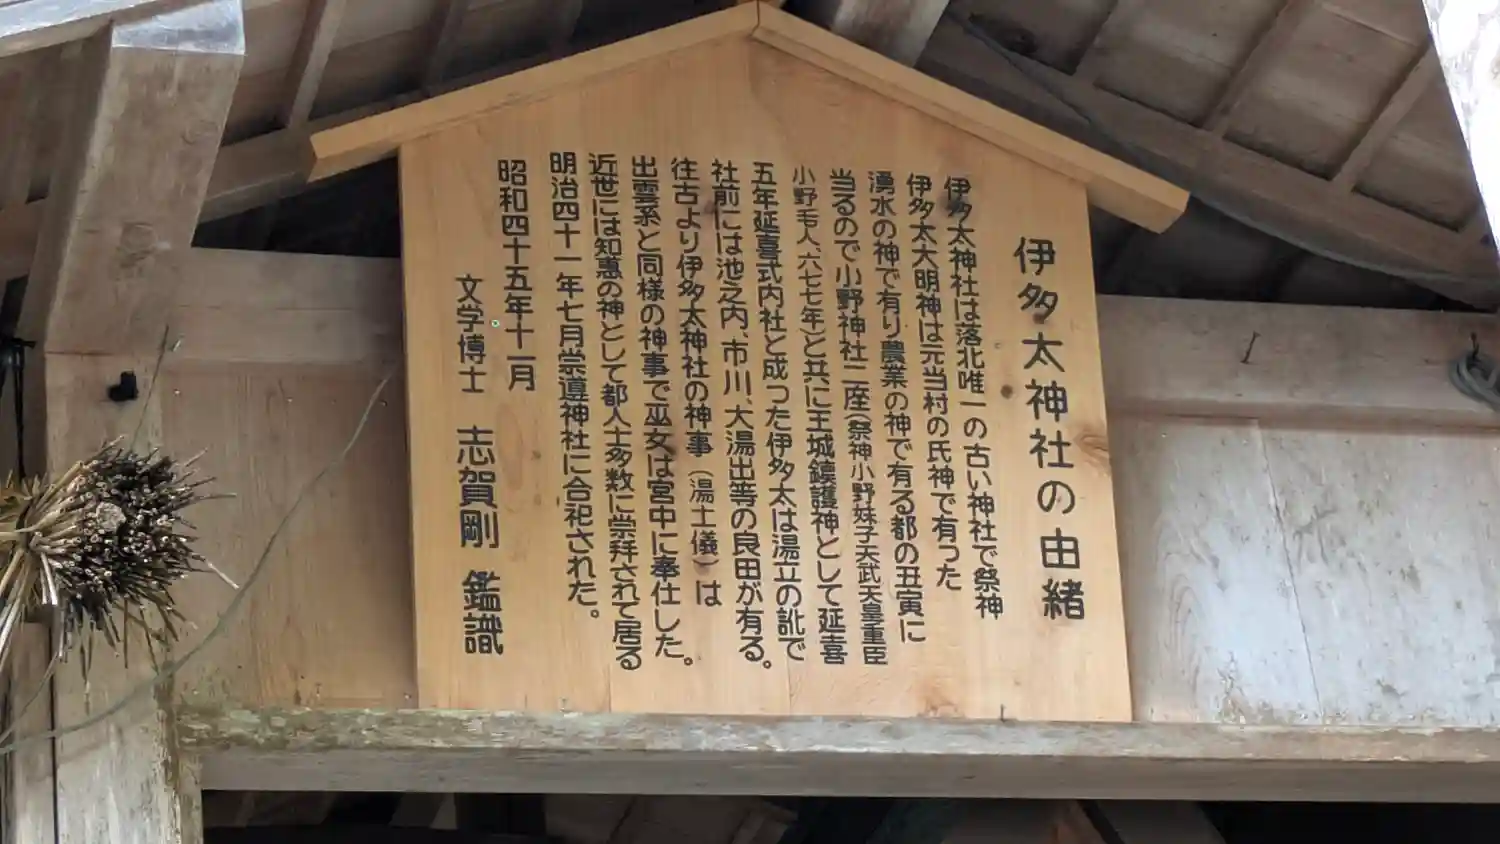 伊多太神社の由緒
伊多太神社は落北唯一の古い神社で祭神
伊多太大明神は元当村の氏神で有った
湧水の神で有り農業の神で有る都の丑寅に
当るので小野神社二座（祭神小野妹子天武天皇重臣
小野毛人、六七七年）と共に王城鎮護神として延喜
五年延喜式内社と成つた伊多太は湯立の訛で
社前には池之内、市川、大湯出等の良田が有る。
往古より伊多太神社の神事（湯土儀）は
出雲系と同様の神事で巫女は宮中に奉仕した。
近世には知恵の神として都人士多数に崇拝されて居る
明治四十一年七月崇導神社に合祀された。
昭和四十五年十一月
文学博士 志賀剛 鑑識